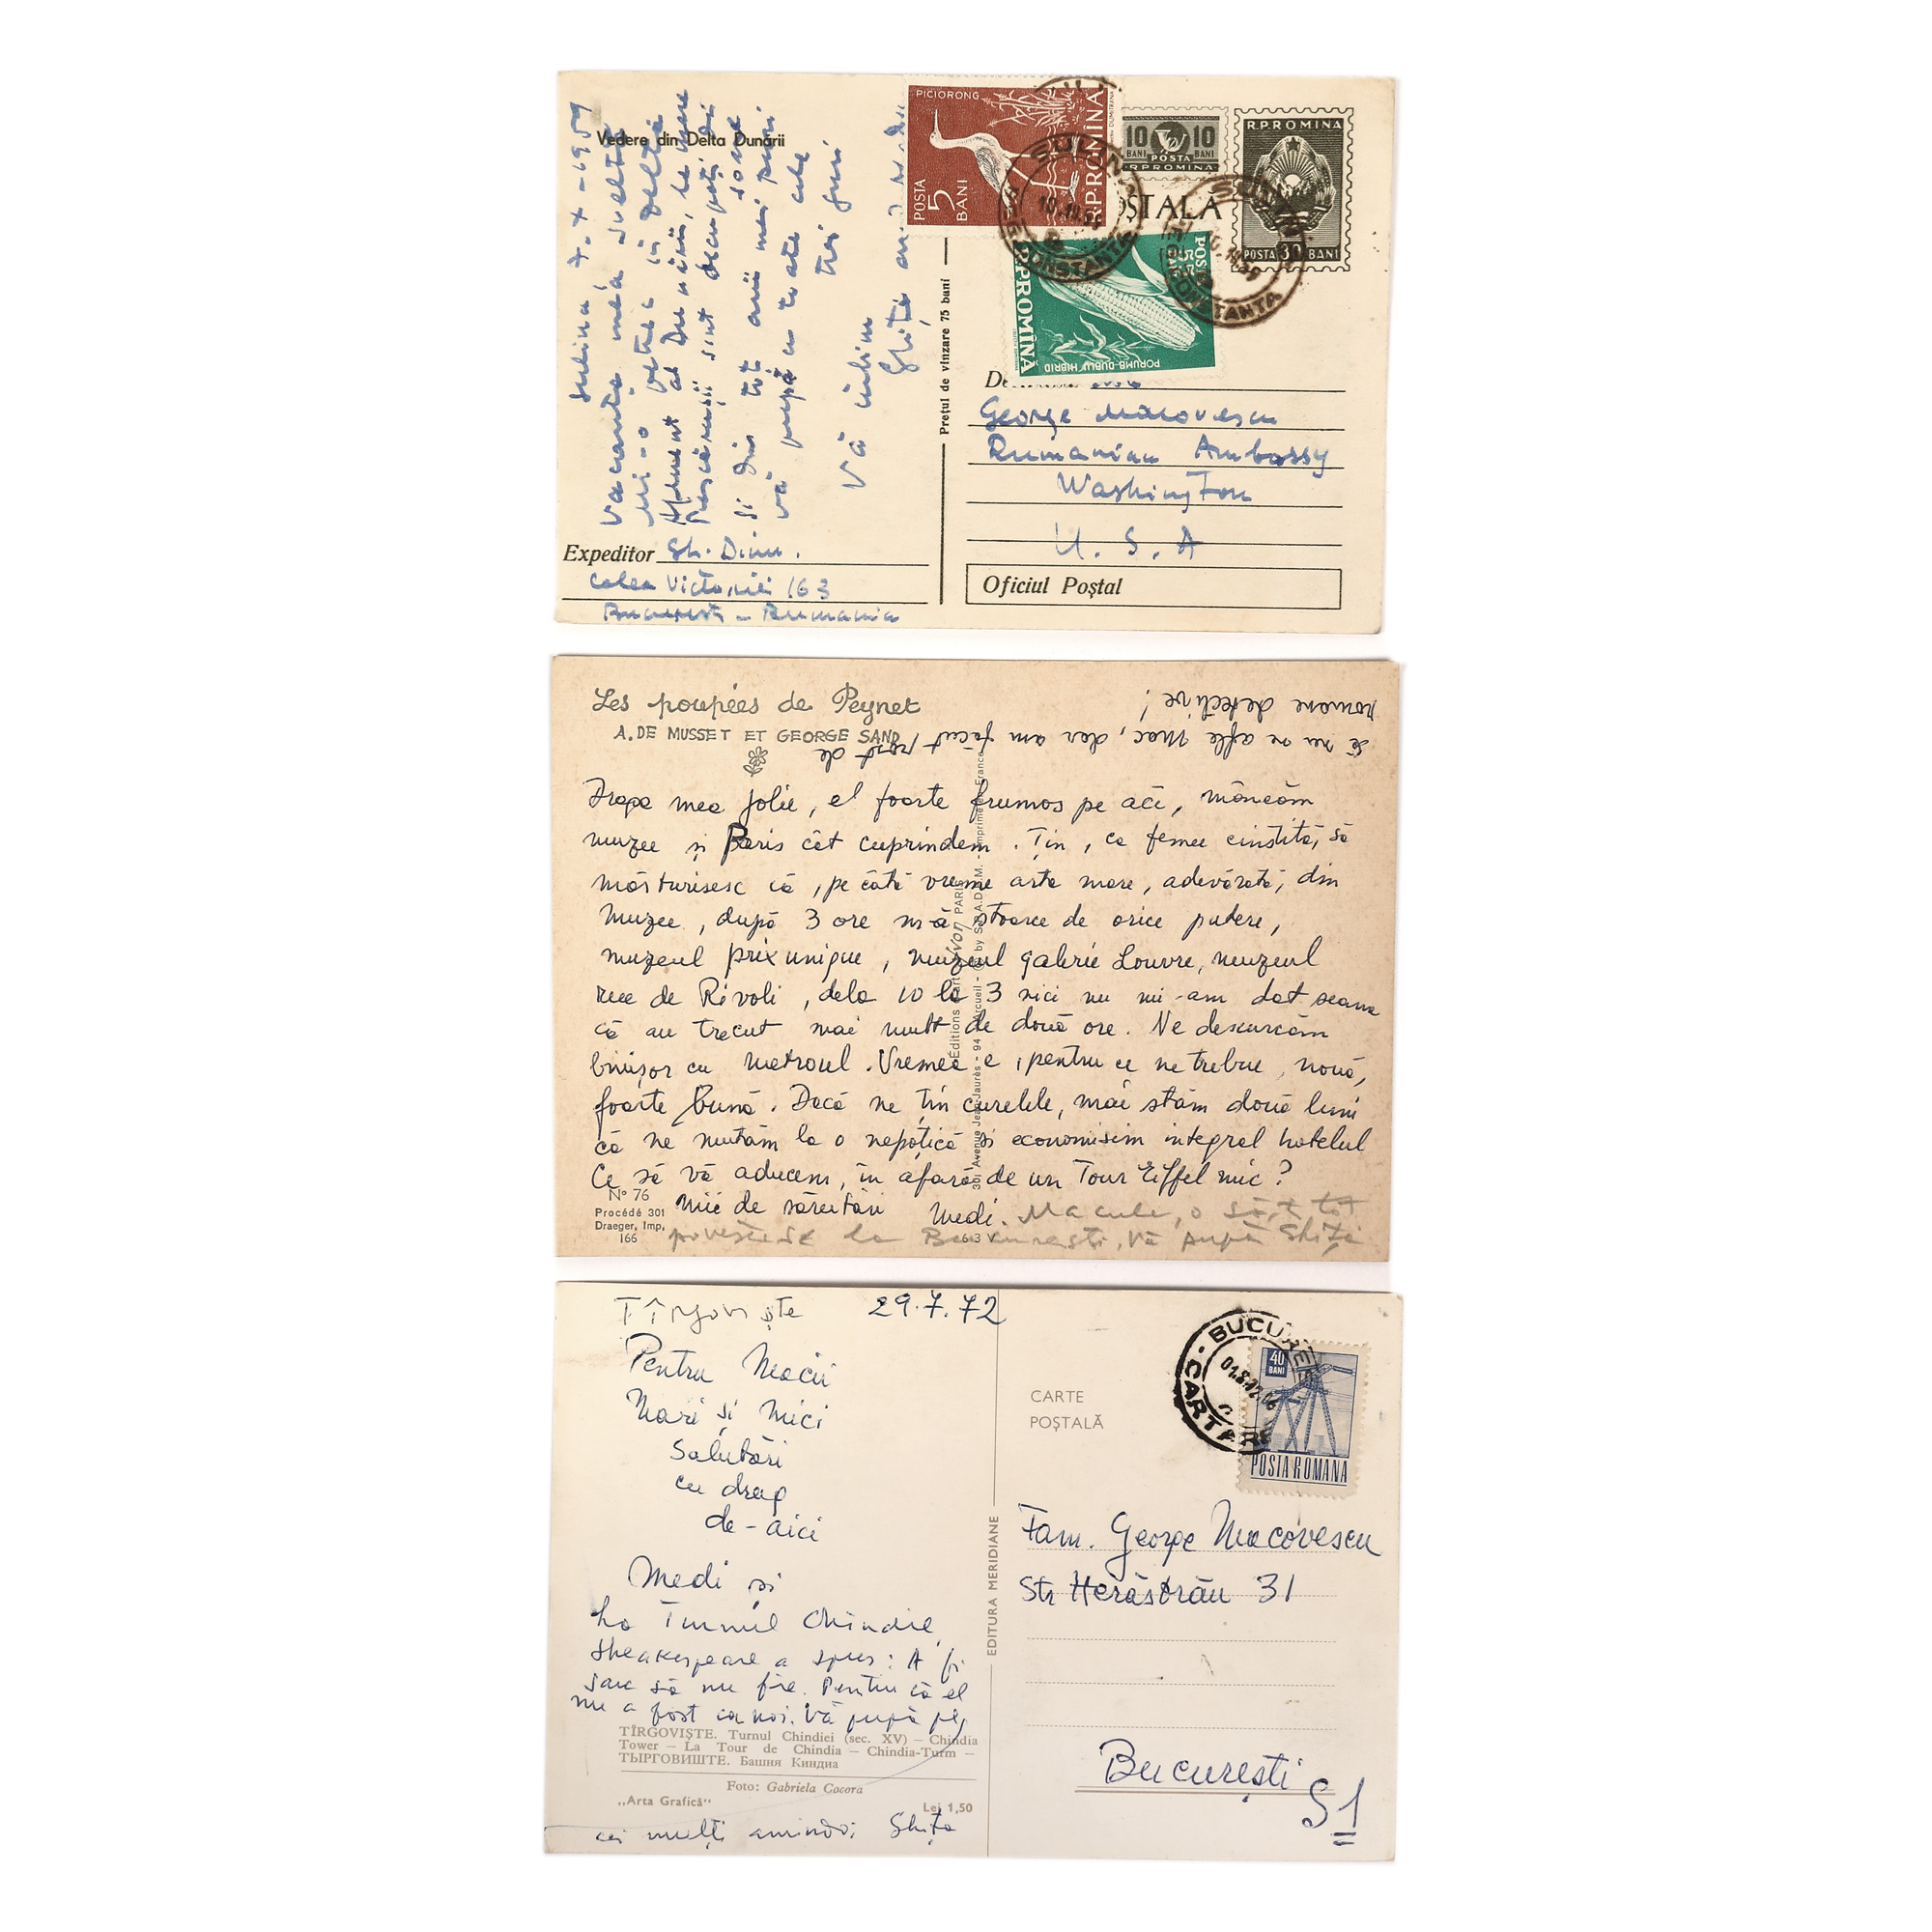 Vedere din Delta Dunării
Sulina, 7-X-1959
Vacanța mea
mi-o petrec în deltă
Apusent al Dunării,
Pescărușii sînt
și din tot
vă pupă cu toate cele
trei guri
Vă iubim
Ghiță
Expeditor Gh. Dinu.
Calea Victoriei 163
București - Rumania
Prețul de vînzare 75 bani
PICIORONG
POSTA
5
BANI
R.P.ROMÎNA
10 BANI
10 BANI
POSTA
R.P.ROMÎNA
R.P.ROMINA
POSTA 30 BANI
POȘTALĂ
SULINA
CONSTANTA
SULINA
CONSTANTA
POSTA
55
R.P.ROMÎNA
PORUMB DUBLU HIBRID
George Macovescu
Rumanian Ambassy
Washington
U. S. A
Oficiul Poștal
Les poupées de Peynet
A. DE MUSSET ET GEORGE SAND
Draga mea Jolie, el foarte frumos pe aci, mâncăm
muzee și Paris cât cuprindem. Țin, ca femee cinstită, să
mărturisesc că, pe câtă vreme arta mare, adevărată, din
muzee, după 3 ore mă stoarce de orice putere,
muzeul prix unique, muzeul galerie Louvre, muzeul
rue de Rivoli, dela 10 la 3 nici nu mi-am dat seama
că au trecut mai mult de două ore. Ne descurcăm
binișor cu metroul. Vremea e, pentru ce ne trebue, nouă,
foarte bună. Dacă ne țin curelele, mai stăm două luni
că ne mutăm la o nepoțică și economisim integral hotelul
Ce să vă aducem, în afară de un Tour Eiffel mic?
Mii de sărutări Medi. Macule, o să-ți tot
povestesc la București, Vă pupă Ghiță
Să nu se afle Mac, dar am făcut rost de
romane detective!
N° 76
Procédé 301
Draeger, Imp.
166
63 V
Éditions d'art Yvon PARIS
301 Avenue Jean-Jaurès - 94 Arcueil - © by S.P.A.D.E.M. - Imprimé en France
Tîrgoviște 29.7.72
Pentru Macii
Mari și Mici
Salutări
cu drag
de-aici
Medi și
La Turnul Chindiei,
Sheakespeare a spus: A fi
sau să nu fie. Pentru că el
nu a fost ca noi. Vă pupă pe
TÎRGOVIȘTE. Turnul Chindiei (sec. XV) — Chindia
Tower — La Tour de Chindia — Chindia-Turm —
ТЫРГОВИШТЕ. Башня Киндиа
Foto: Gabriela Cocora
„Arta Grafică“
Lei 1,50
cei mulți amîndoi Ghiță
EDITURA MERIDIANE
CARTE
POȘTALĂ
BUCUREȘTI
CARTARE
40
BANI
POSTA ROMANA
Fam. George Macovescu
Str Herăstrău 31
București
S1